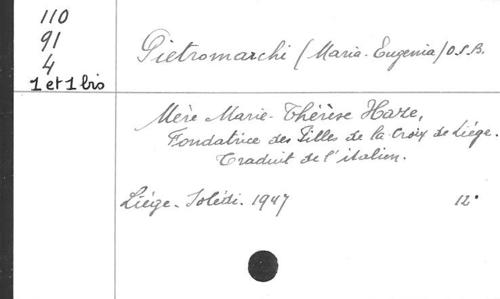 110
91
4
1 et 1 bis
Pietromarchi (Maria-Eugenia) O.S.B.
Mère Marie-Thérèse Haze,
Fondatrice des Filles de la Croix de Liége.
Traduit de l'italien.
Liége. Solédi. 1947 12°